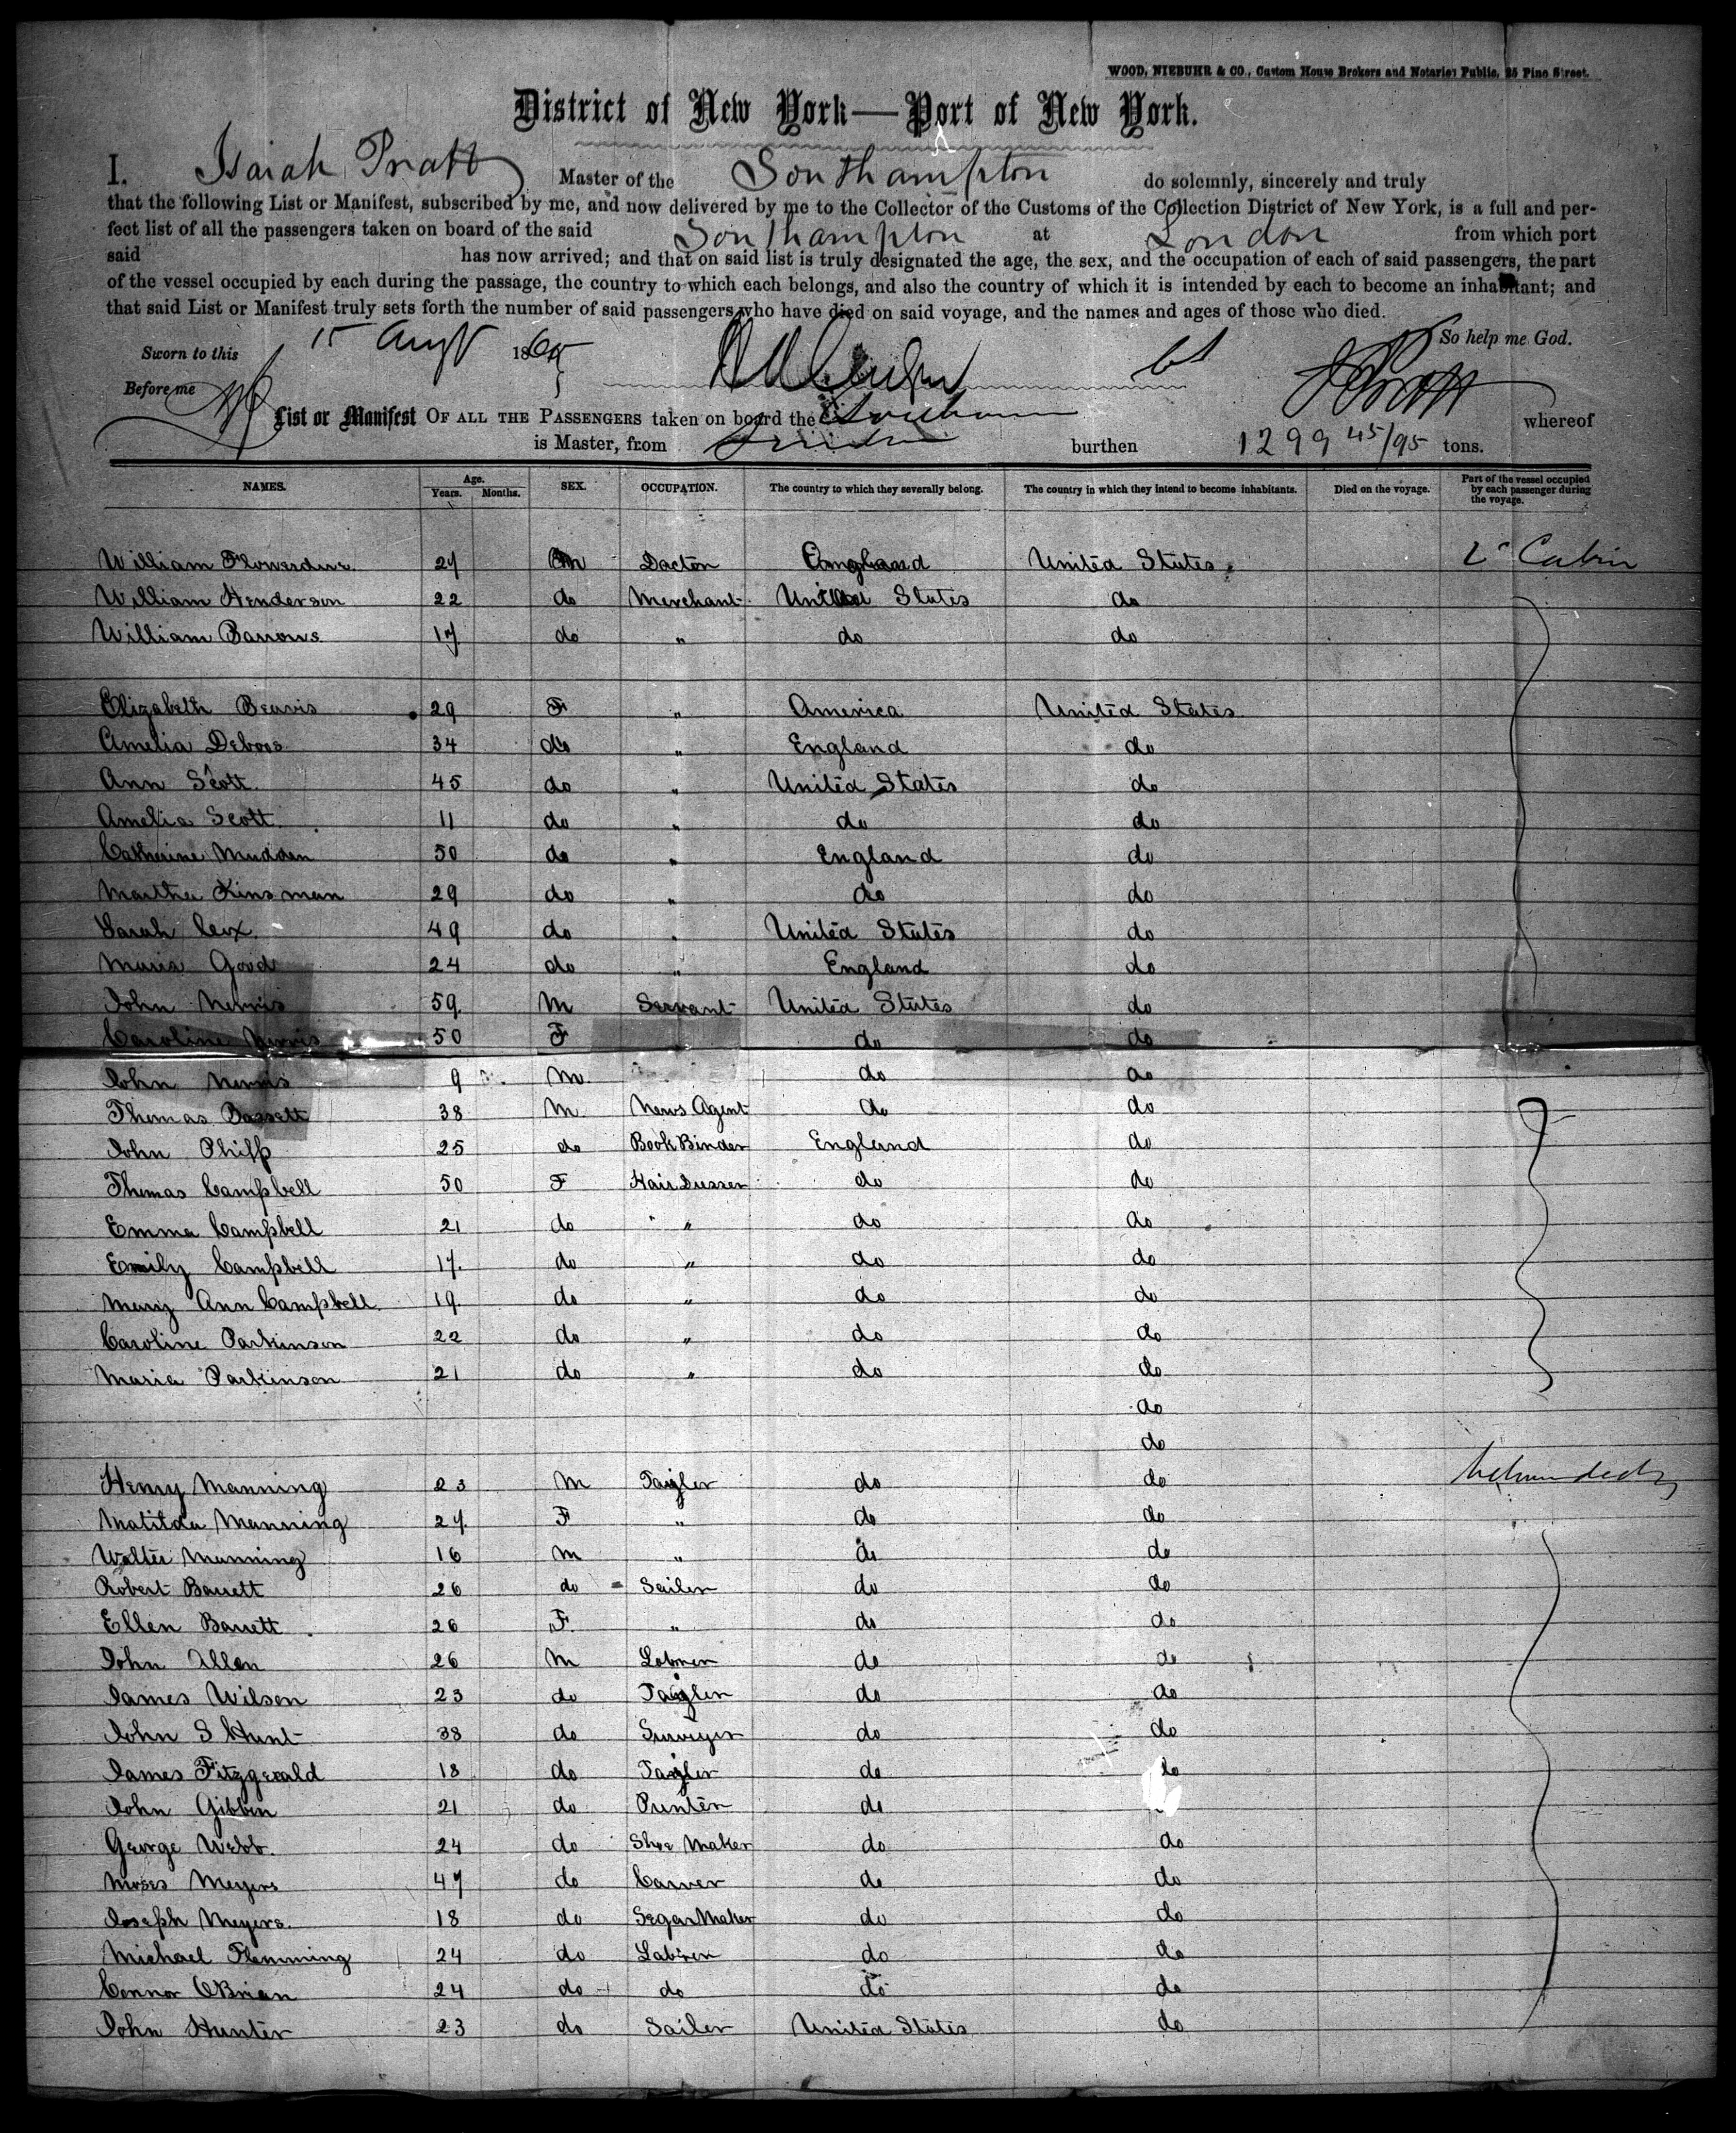 WOOD, NIEBUHR & CO., Custom House Brokers and Notaries Public, 25 Pine Street.
District of New York—Port of New York.
I, Isaiah Pratt Master of the Southampton do solemnly, sincerely and truly
that the following List or Manifest, subscribed by me, and now delivered by me to the Collector of the Customs of the Collection District of New York, is a full and per-
fect list of all the passengers taken on board of the said Southampton at London from which port
said has now arrived; and that on said list is truly designated the age, the sex, and the occupation of each of said passengers, the part
of the vessel occupied by each during the passage, the country to which each belongs, and also the country of which it is intended by each to become an inhabitant; and
that said List or Manifest truly sets forth the number of said passengers who have died on said voyage, and the names and ages of those who died.
So help me God.
Sworn to this 15 Augt 1865
Before me I Pratt
List or Manifest OF ALL THE PASSENGERS taken on board the whereof
is Master, from London burthen 1299 45/95 tons.
NAMES. Age. Years. Months. SEX. OCCUPATION. The country to which they severally belong. The country in which they intend to become inhabitants. Died on the voyage. Part of the vessel occupied by each passenger during the voyage.
William 27 M Docton England United States 2d Cabin
William Henderson 22 do Merchant United States do
William Barrows 17 do " do do
Elizabeth Beavis 29 F " America United States
Amelia Debois 34 do " England do
Ann Scott 45 do " United States do
Amelia Scott 11 do " do do
Catherine Mudden 50 do " England do
Martha Kinsman 29 do " do do
Sarah Cox 49 do " United States do
Maria Good 24 do " England do
John 59 M Servant United States do
Caroline 50 F do do
John 9 M do do
Thomas Bassett 38 M News Agent do do
John Phipp 25 do Book Binder England do
Thomas Campbell 50 F Hair Dresser do do
Emma Campbell 21 do " do do
Emily Campbell 17 do " do do
Mary Ann Campbell 19 do " do do
Caroline Parkinson 22 do " do do
Maria Parkinson 21 do " do do
do
do
Henry Manning 23 M Tailer do do Between decks
Matilda Manning 27 F " do do
Walter Manning 16 M " do do
Robert Barrett 26 do Sailer do do
Ellen Barrett 26 F " do do
John Allen 26 M Laborer do do
James Wilson 23 do Tailer do do
John S Hunt 38 do Surveyer do do
James Fitzgerald 18 do Tailer do do
John Gibbin 21 do Printer do
George Webb 24 do Shoe Maker do do
Moses Meyers 47 do Carver do do
Joseph Meyers 18 do Segar Maker do do
Michael Flemming 24 do Laborer do do
Connor OBrian 24 do do do do
John Hunter 23 do Sailer United States do